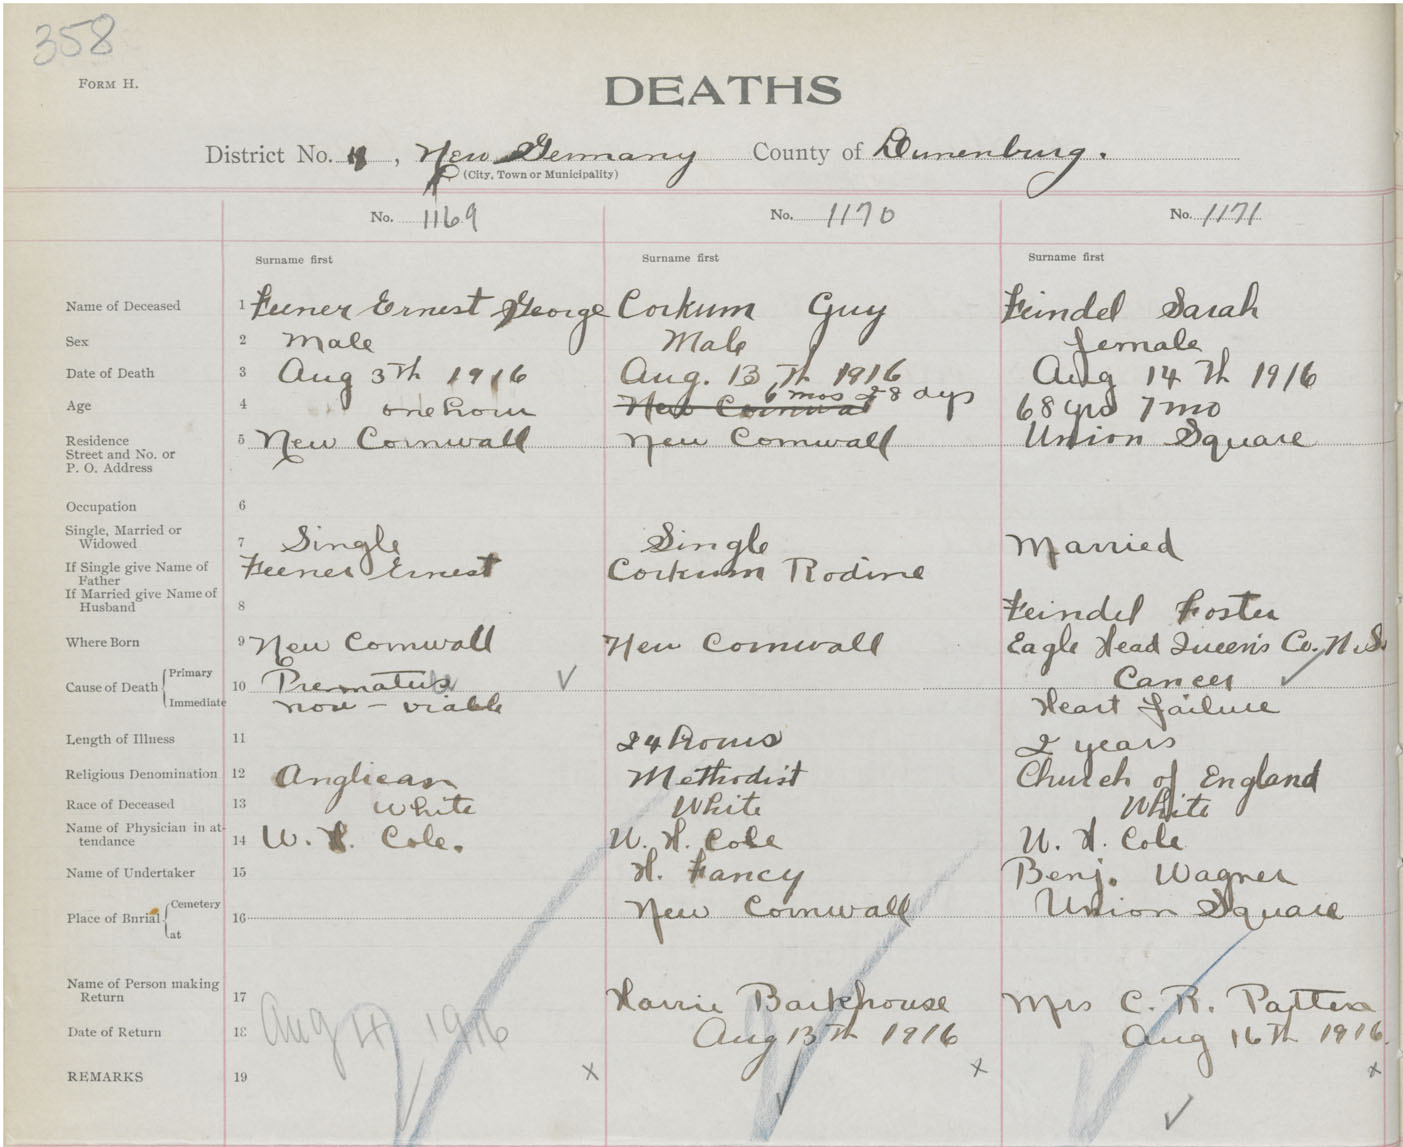 358
FORM H.
DEATHS
District No. 4, New Germany County of Lunenburg.
(City, Town or Municipality)
No. 1169 No. 1170 No. 1171
Surname first Surname first Surname first
Name of Deceased 1 Feener Ernest George Corkum Guy Feindel Sarah
Sex 2 Male Male female
Date of Death 3 Aug 3th 1916 Aug. 13th 1916 Aug 14th 1916
Age 4 one hour New Cornwal 6 mos 28 days 68 yrs 7 mo
Residence 5 New Cornwall New Cornwall Union Square
Street and No. or
P. O. Address
Occupation 6
Single, Married or
Widowed 7 Single Single Married
If Single give Name of
Father Feener Ernest Corkum Rodine
If Married give Name of
Husband 8 Feindel Foster
Where Born 9 New Cornwall New Cornwall Eagle Head Queen's Co. N.S.
Cause of Death Primary 10 Premature Cancer
Immediate non-viable Heart failure
Length of Illness 11 24 hours 2 years
Religious Denomination 12 Anglican Methodist Church of England
Race of Deceased 13 White White White
Name of Physician in at-
tendance 14 W. H. Cole. W. H. Cole W. H. Cole
Name of Undertaker 15 H. Fancy Benj. Wagner
Place of Burial Cemetery 16 New Cornwall Union Square
at
Name of Person making
Return 17 Harrie Barkhouse Mrs C. R.
Date of Return 18 Aug 4 1916 Aug 13th 1916 Aug 16th 1916.
REMARKS 19 x x x